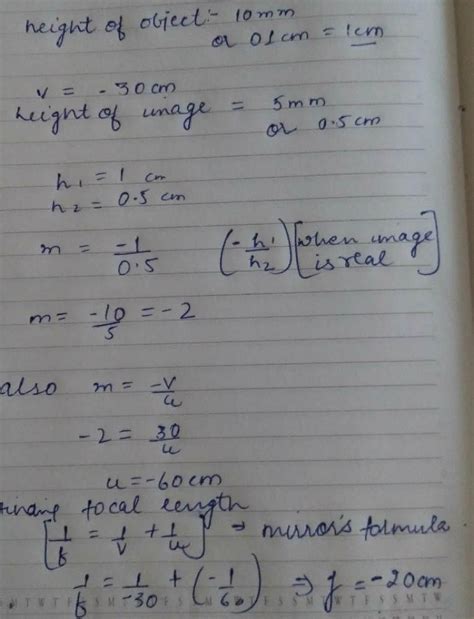 height of object:- 10mm
or 01cm = 1cm
v = -30cm
height of image = 5mm
or 0.5cm
h1 = 1 cm
h2 = 0.5 cm
m = -1/0.5 (-h1/h2) [when image is real]
m = -10/5 = -2
also m = -v/u
-2 = 30/u
u = -60cm
finding focal length
[1/f = 1/v + 1/u] ⇒ mirror's formula
1/f = 1/-30 + (-1/60) ⇒ f = -20cm